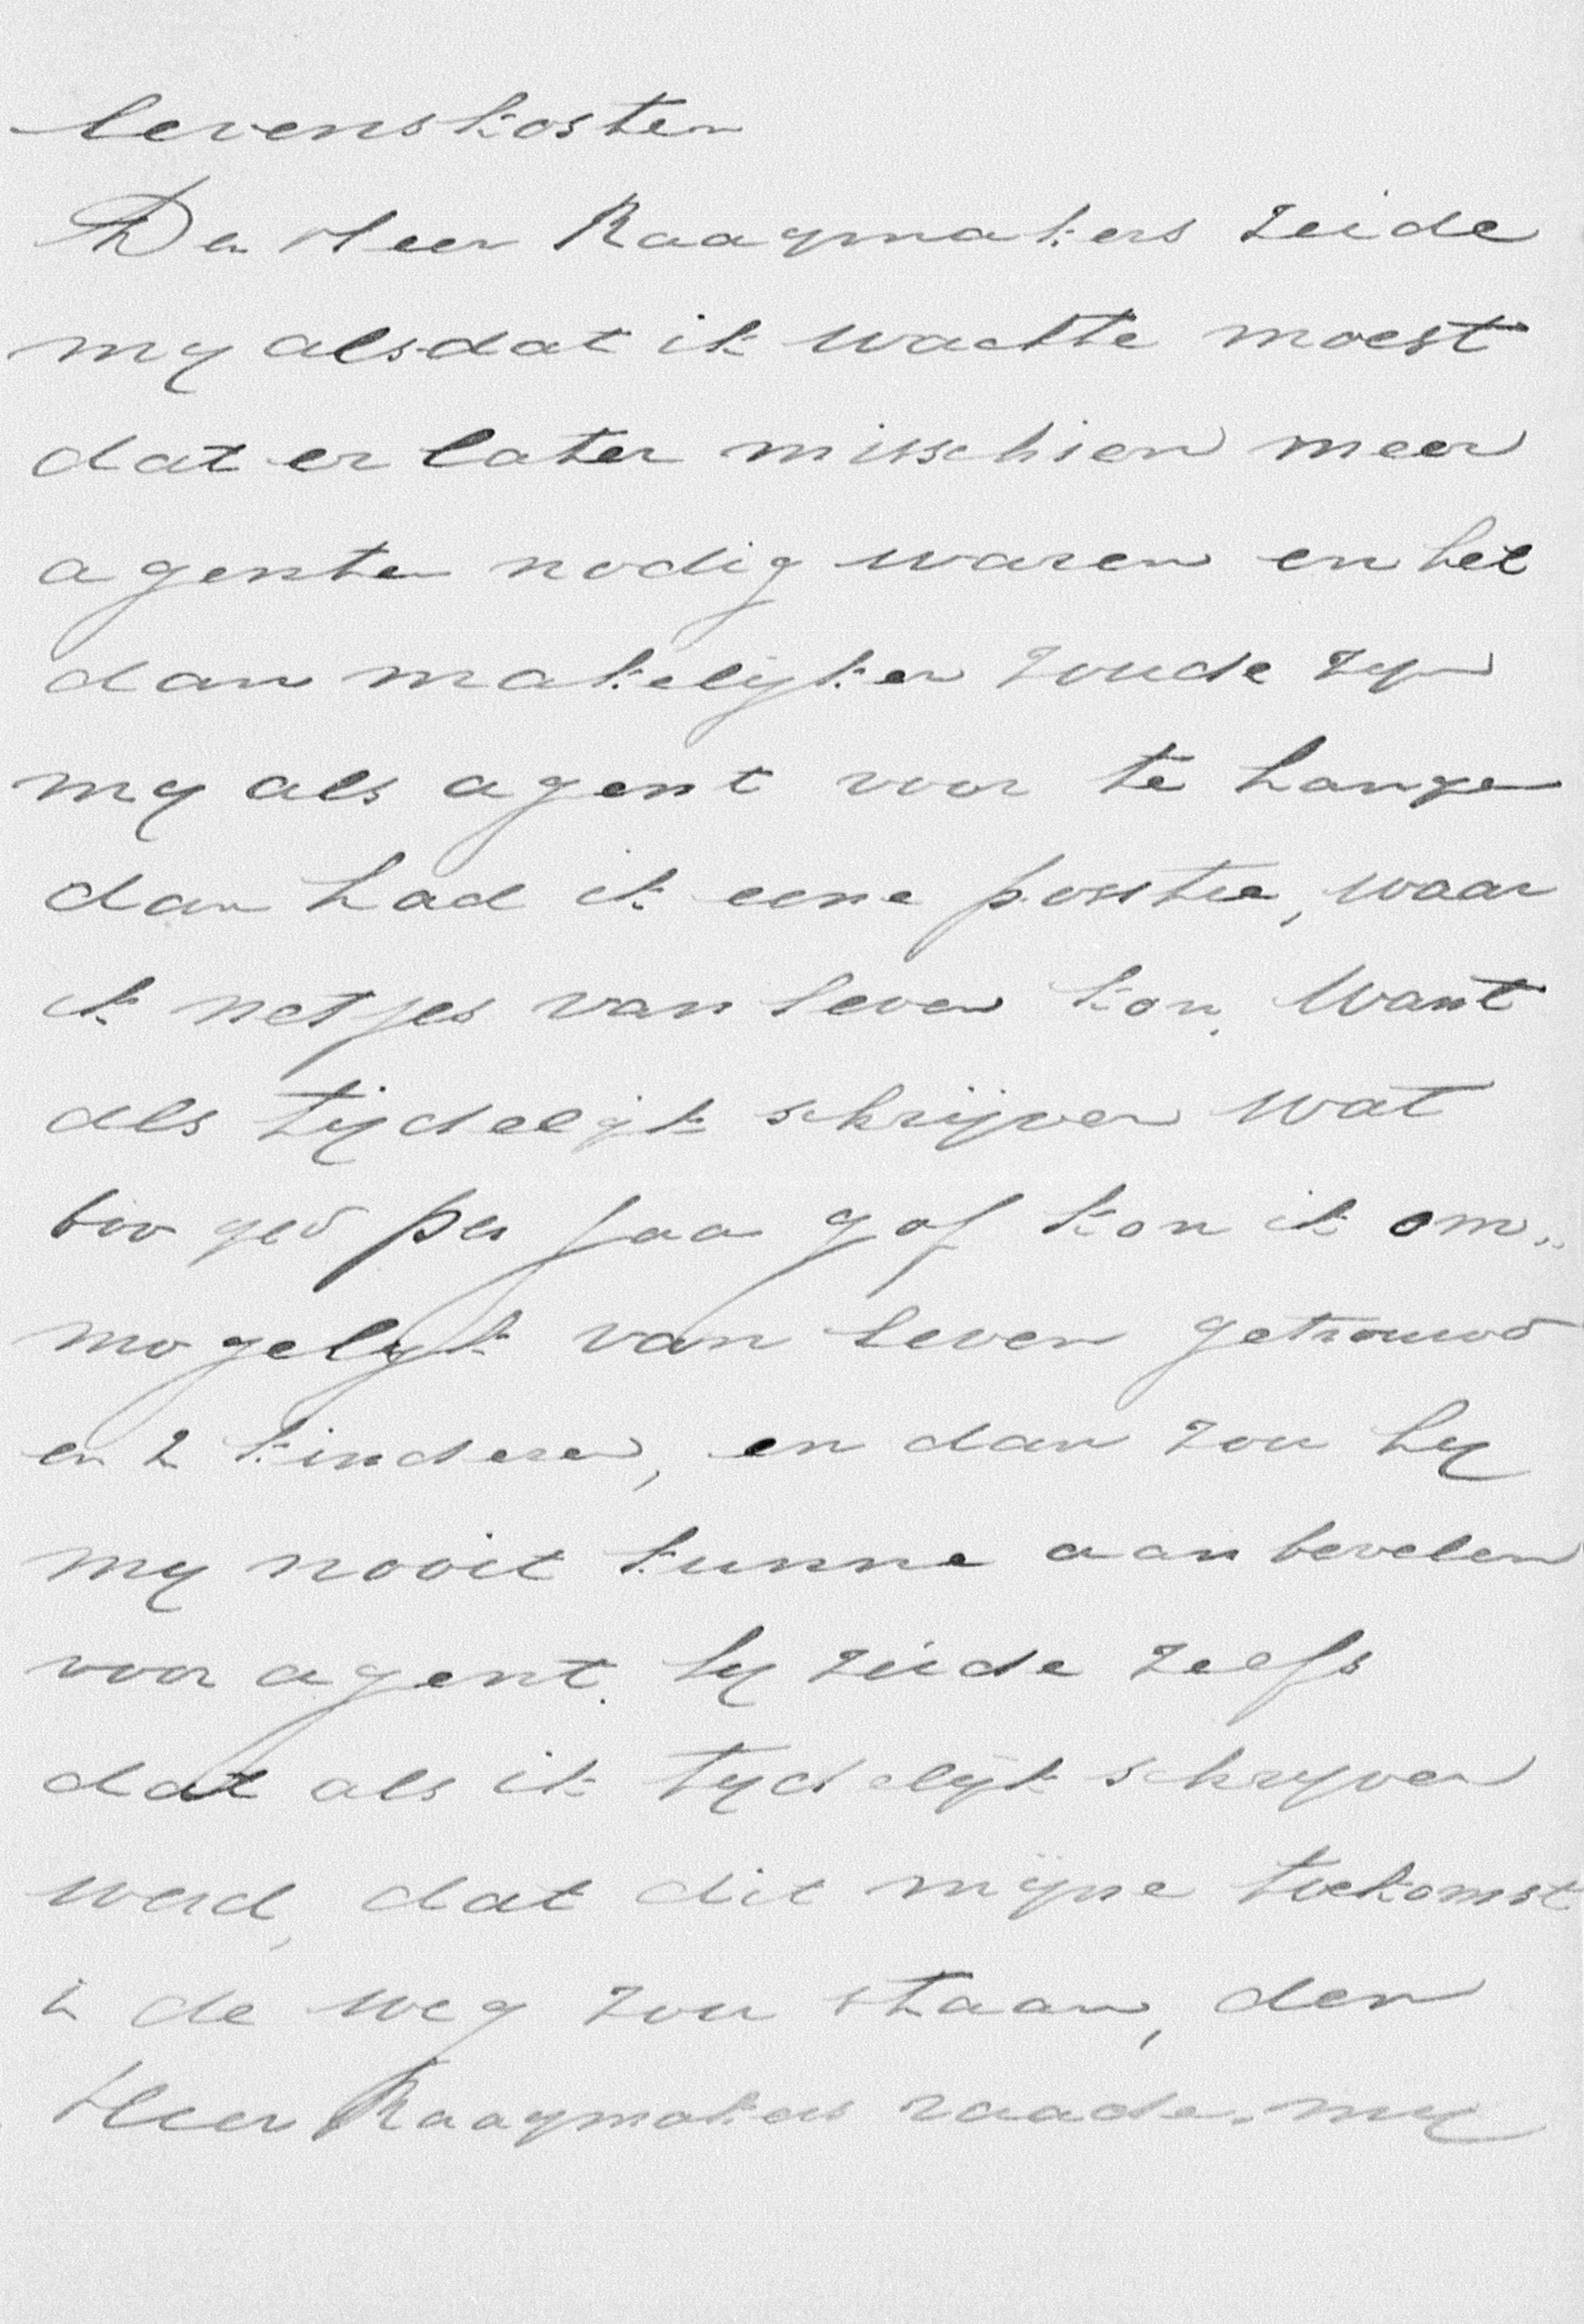 levenskosten
Den Heer Raaymakers zeide
my alsdat ik wachte moest
dat er later misschien meer
agenten nodig waren en het
dan makelijker zoude zyn
my als agent voor te hangen
dan had ik eene positie, waar
ik netjes van leven kon. Want
als tijdelijk schrijver wat
600 gld per jaar gaf kon ik om„
mogelyk van leven getrouwd
en 2 kinderen, en dan zou hy
my nooit kunne aanbevelen
voor agent. hy zeide zelfs
dat als ik tydelijk schryver
werd, dat dit mijne toekomst
in de weg zou staan, den
Heer Raaymakers raade my